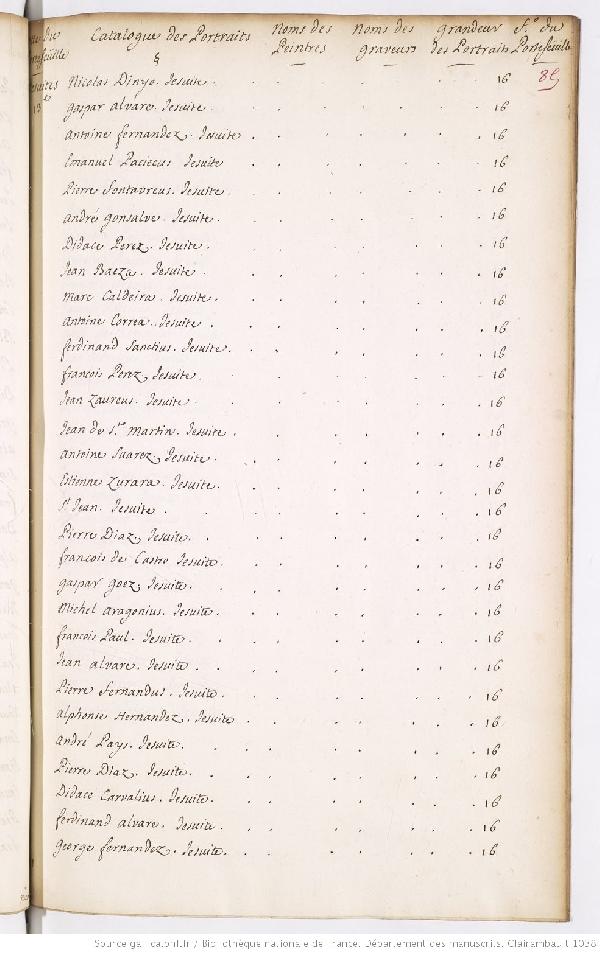 Catalogue des Portraits Noms des Peintres Noms des graveurs grandeur des Portraits f.º du Portefeuille
85
Nicolas Dinyo. Jesuite . . . . 16
gaspar alvare. Jesuite . . . . 16
Antoine fernandez. Jesuite . . . . 16
Emanuel Paciecus Jesuite . . . . 16
Pierre fontavreus. Jesuite . . . . 16
André gonsalve. Jesuite . . . . 16
Didace Perez. Jesuite . . . . 16
Jean Baeza. Jesuite . . . . 16
Marc Caldeira. Jesuite . . . . 16
Antoine Correa. Jesuite . . . . 16
ferdinand Sanctius. Jesuite . . . . 16
françois Perez, Jesuite . . . . 16
Jean Zaureus. Jesuite . . . . 16
Jean de S.t Martin. Jesuite . . . . 16
Antoine Suarez, Jesuite . . . . 16
Estienne Zurara. Jesuite . . . . 16
S.t Jean. Jesuite . . . . 16
Pierre Diaz, Jesuite . . . . 16
françois de Castro Jesuite . . . . 16
gaspar goez, Jesuite . . . . 16
Michel Aragonius. Jesuite . . . . 16
françois Paul. Jesuite . . . . 16
Jean alvare. Jesuite . . . . 16
Pierre fernandus. Jesuite . . . . 16
alphonse Hernandez. Jesuite . . . . 16
André Pays. Jesuite . . . . 16
Pierre Diaz, Jesuite . . . . 16
Didace Carvalius. Jesuite . . . . 16
ferdinand alvare. Jesuite . . . . 16
george fernandez. Jesuite . . . . 16
Source gallica.bnf.fr / Bibliothèque nationale de France. Département des manuscrits. Clairambault 1038